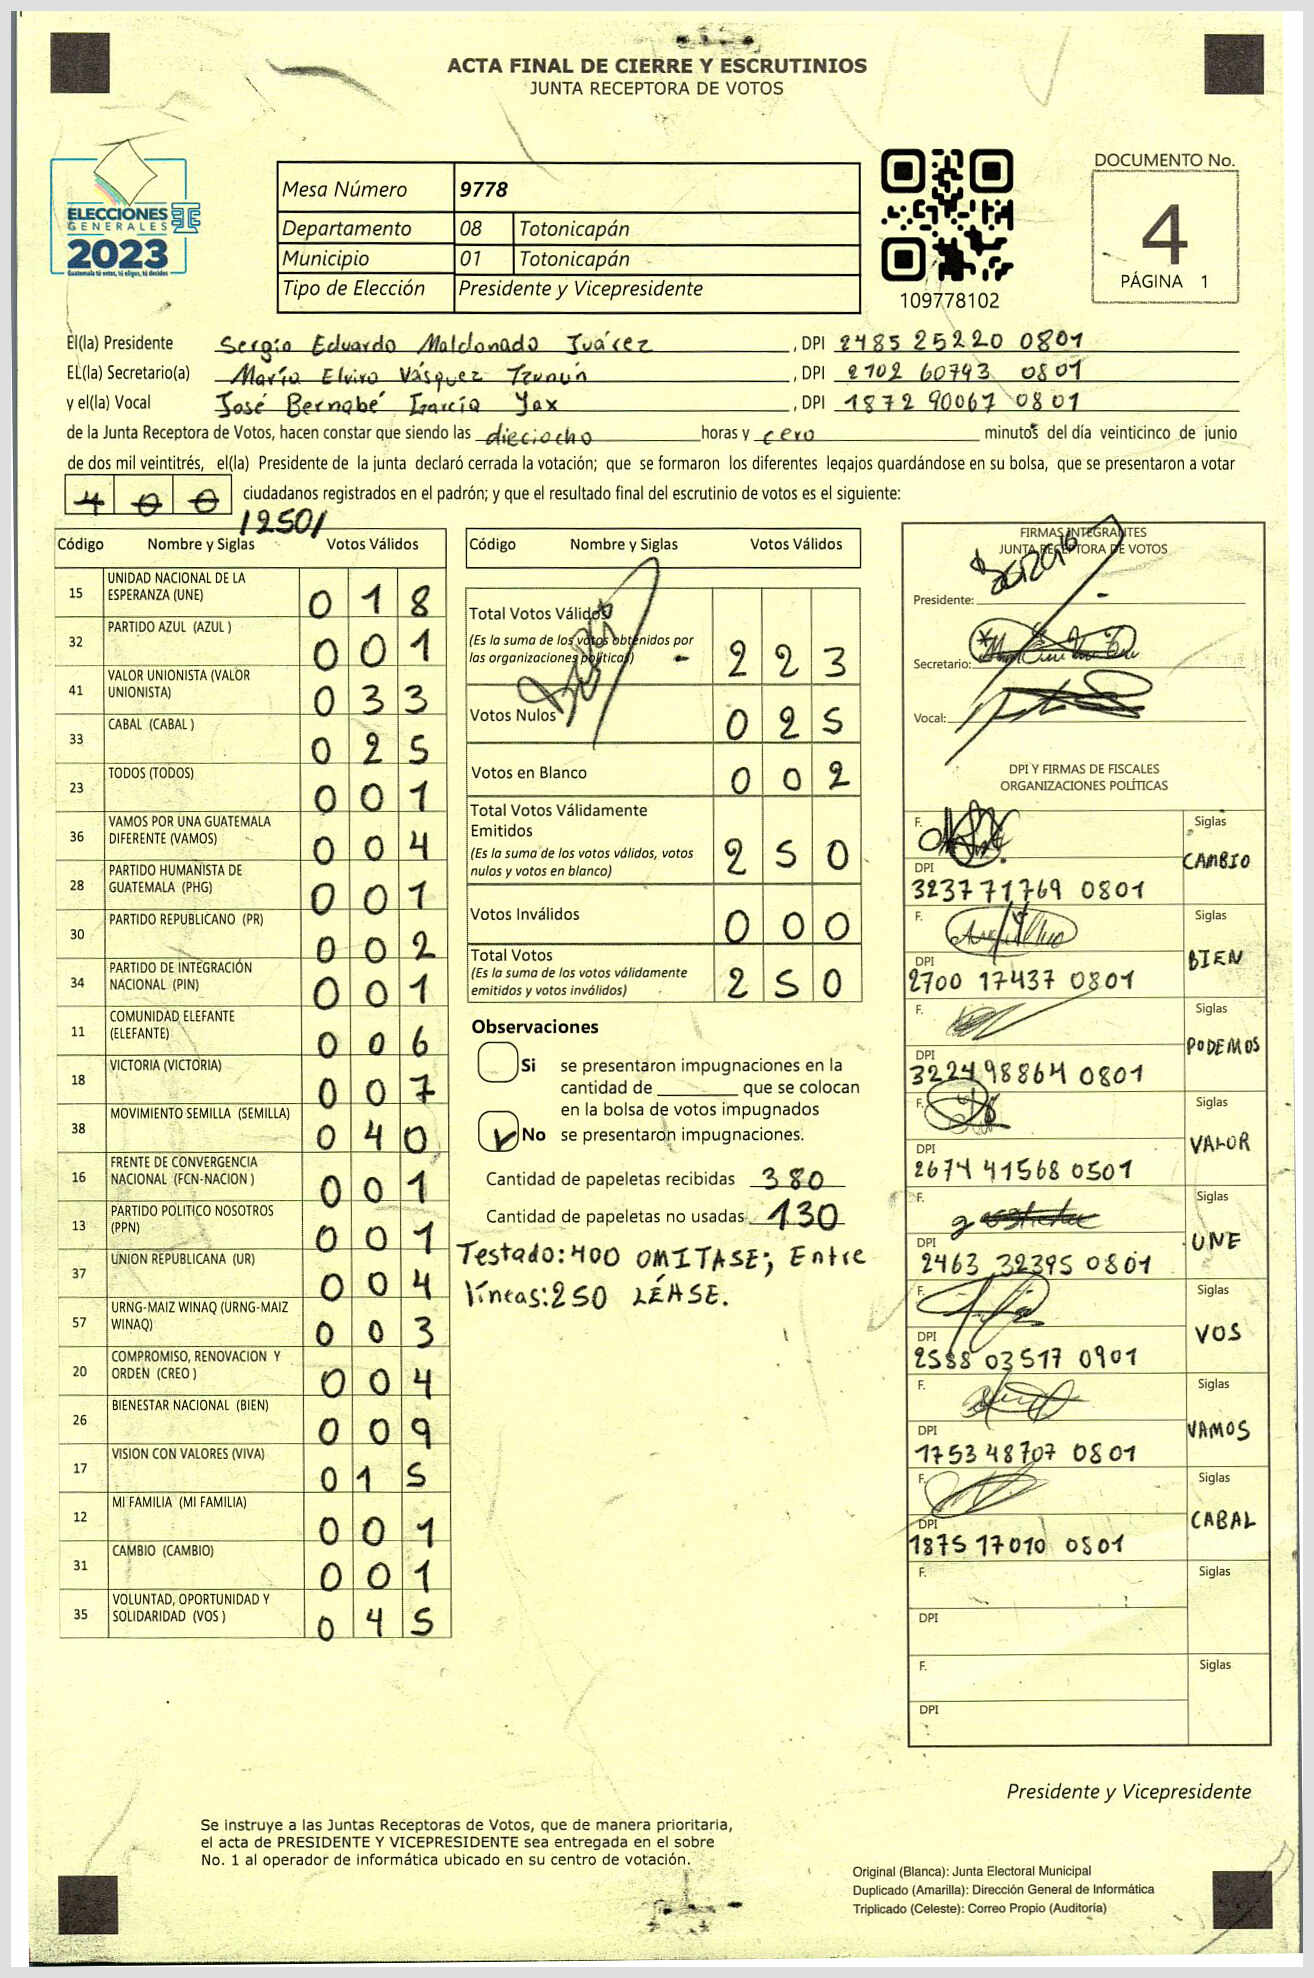 ACTA FINAL DE CIERRE Y ESCRUTINIOS
JUNTA RECEPTORA DE VOTOS
ELECCIONES
GENERALES
2023
Guatemala tú votas, tú eliges, tú decides
Mesa Número 9778
Departamento 08 Totonicapán
Municipio 01 Totonicapán
Tipo de Elección Presidente y Vicepresidente
109778102
DOCUMENTO No.
4
PÁGINA 1
El(la) Presidente Sergio Eduardo Maldonado Juárez, DPI 2485 25220 0801
EL(la) Secretario(a) María Elvira Vásquez Tzunún, DPI 2102 60793 0801
y el(la) Vocal José Bernabé García Yax, DPI 1872 90067 0801
de la Junta Receptora de Votos, hacen constar que siendo las dieciocho horas y cero minutos del día veinticinco de junio
de dos mil veintitrés, el(la) Presidente de la junta declaró cerrada la votación; que se formaron los diferentes legajos guardándose en su bolsa, que se presentaron a votar
400 ciudadanos registrados en el padrón; y que el resultado final del escrutinio de votos es el siguiente:
/250/
Código Nombre y Siglas Votos Válidos
15 UNIDAD NACIONAL DE LA ESPERANZA (UNE) 018
32 PARTIDO AZUL (AZUL ) 001
41 VALOR UNIONISTA (VALOR UNIONISTA) 033
33 CABAL (CABAL ) 025
23 TODOS (TODOS) 001
36 VAMOS POR UNA GUATEMALA DIFERENTE (VAMOS) 004
28 PARTIDO HUMANISTA DE GUATEMALA (PHG) 001
30 PARTIDO REPUBLICANO (PR) 002
34 PARTIDO DE INTEGRACIÓN NACIONAL (PIN) 001
11 COMUNIDAD ELEFANTE (ELEFANTE) 006
18 VICTORIA (VICTORIA) 007
38 MOVIMIENTO SEMILLA (SEMILLA) 040
16 FRENTE DE CONVERGENCIA NACIONAL (FCN-NACION ) 001
13 PARTIDO POLITICO NOSOTROS (PPN) 001
37 UNION REPUBLICANA (UR) 004
57 URNG-MAIZ WINAQ (URNG-MAIZ WINAQ) 003
20 COMPROMISO, RENOVACION Y ORDEN (CREO ) 004
26 BIENESTAR NACIONAL (BIEN) 009
17 VISION CON VALORES (VIVA) 015
12 MI FAMILIA (MI FAMILIA) 001
31 CAMBIO (CAMBIO) 001
35 VOLUNTAD, OPORTUNIDAD Y SOLIDARIDAD (VOS ) 045
Código Nombre y Siglas Votos Válidos
Total Votos Válidos 223
(Es la suma de los votos obtenidos por
las organizaciones políticas)
Votos Nulos 025
Votos en Blanco 002
Total Votos Válidamente
Emitidos 250
(Es la suma de los votos válidos, votos
nulos y votos en blanco)
Votos Inválidos 000
Total Votos 250
(Es la suma de los votos válidamente
emitidos y votos inválidos)
Observaciones
Si se presentaron impugnaciones en la
cantidad de ________ que se colocan
en la bolsa de votos impugnados
No se presentaron impugnaciones.
Cantidad de papeletas recibidas 380
Cantidad de papeletas no usadas 130
Testado: 400 OMITASE; Entre
líneas: 250 LÉASE.
FIRMAS INTEGRANTES
JUNTA RECEPTORA DE VOTOS
Presidente:
Secretario:
Vocal:
DPI Y FIRMAS DE FISCALES
ORGANIZACIONES POLÍTICAS
F. Siglas
CAMBIO
DPI
3237 71769 0801
F. Siglas
BIEN
DPI
2700 17437 0801
F. Siglas
PODEMOS
DPI
3224 98864 0801
F. Siglas
VALOR
DPI
2674 41568 0501
F. Siglas
UNE
DPI
2463 32395 0801
F. Siglas
VOS
DPI
2588 03517 0901
F. Siglas
VAMOS
DPI
1753 48707 0801
F. Siglas
CABAL
DPI
1875 17010 0801
F. Siglas
DPI
F. Siglas
DPI
Presidente y Vicepresidente
Se instruye a las Juntas Receptoras de Votos, que de manera prioritaria,
el acta de PRESIDENTE Y VICEPRESIDENTE sea entregada en el sobre
No. 1 al operador de informática ubicado en su centro de votación.
Original (Blanca): Junta Electoral Municipal
Duplicado (Amarilla): Dirección General de Informática
Triplicado (Celeste): Correo Propio (Auditoría)